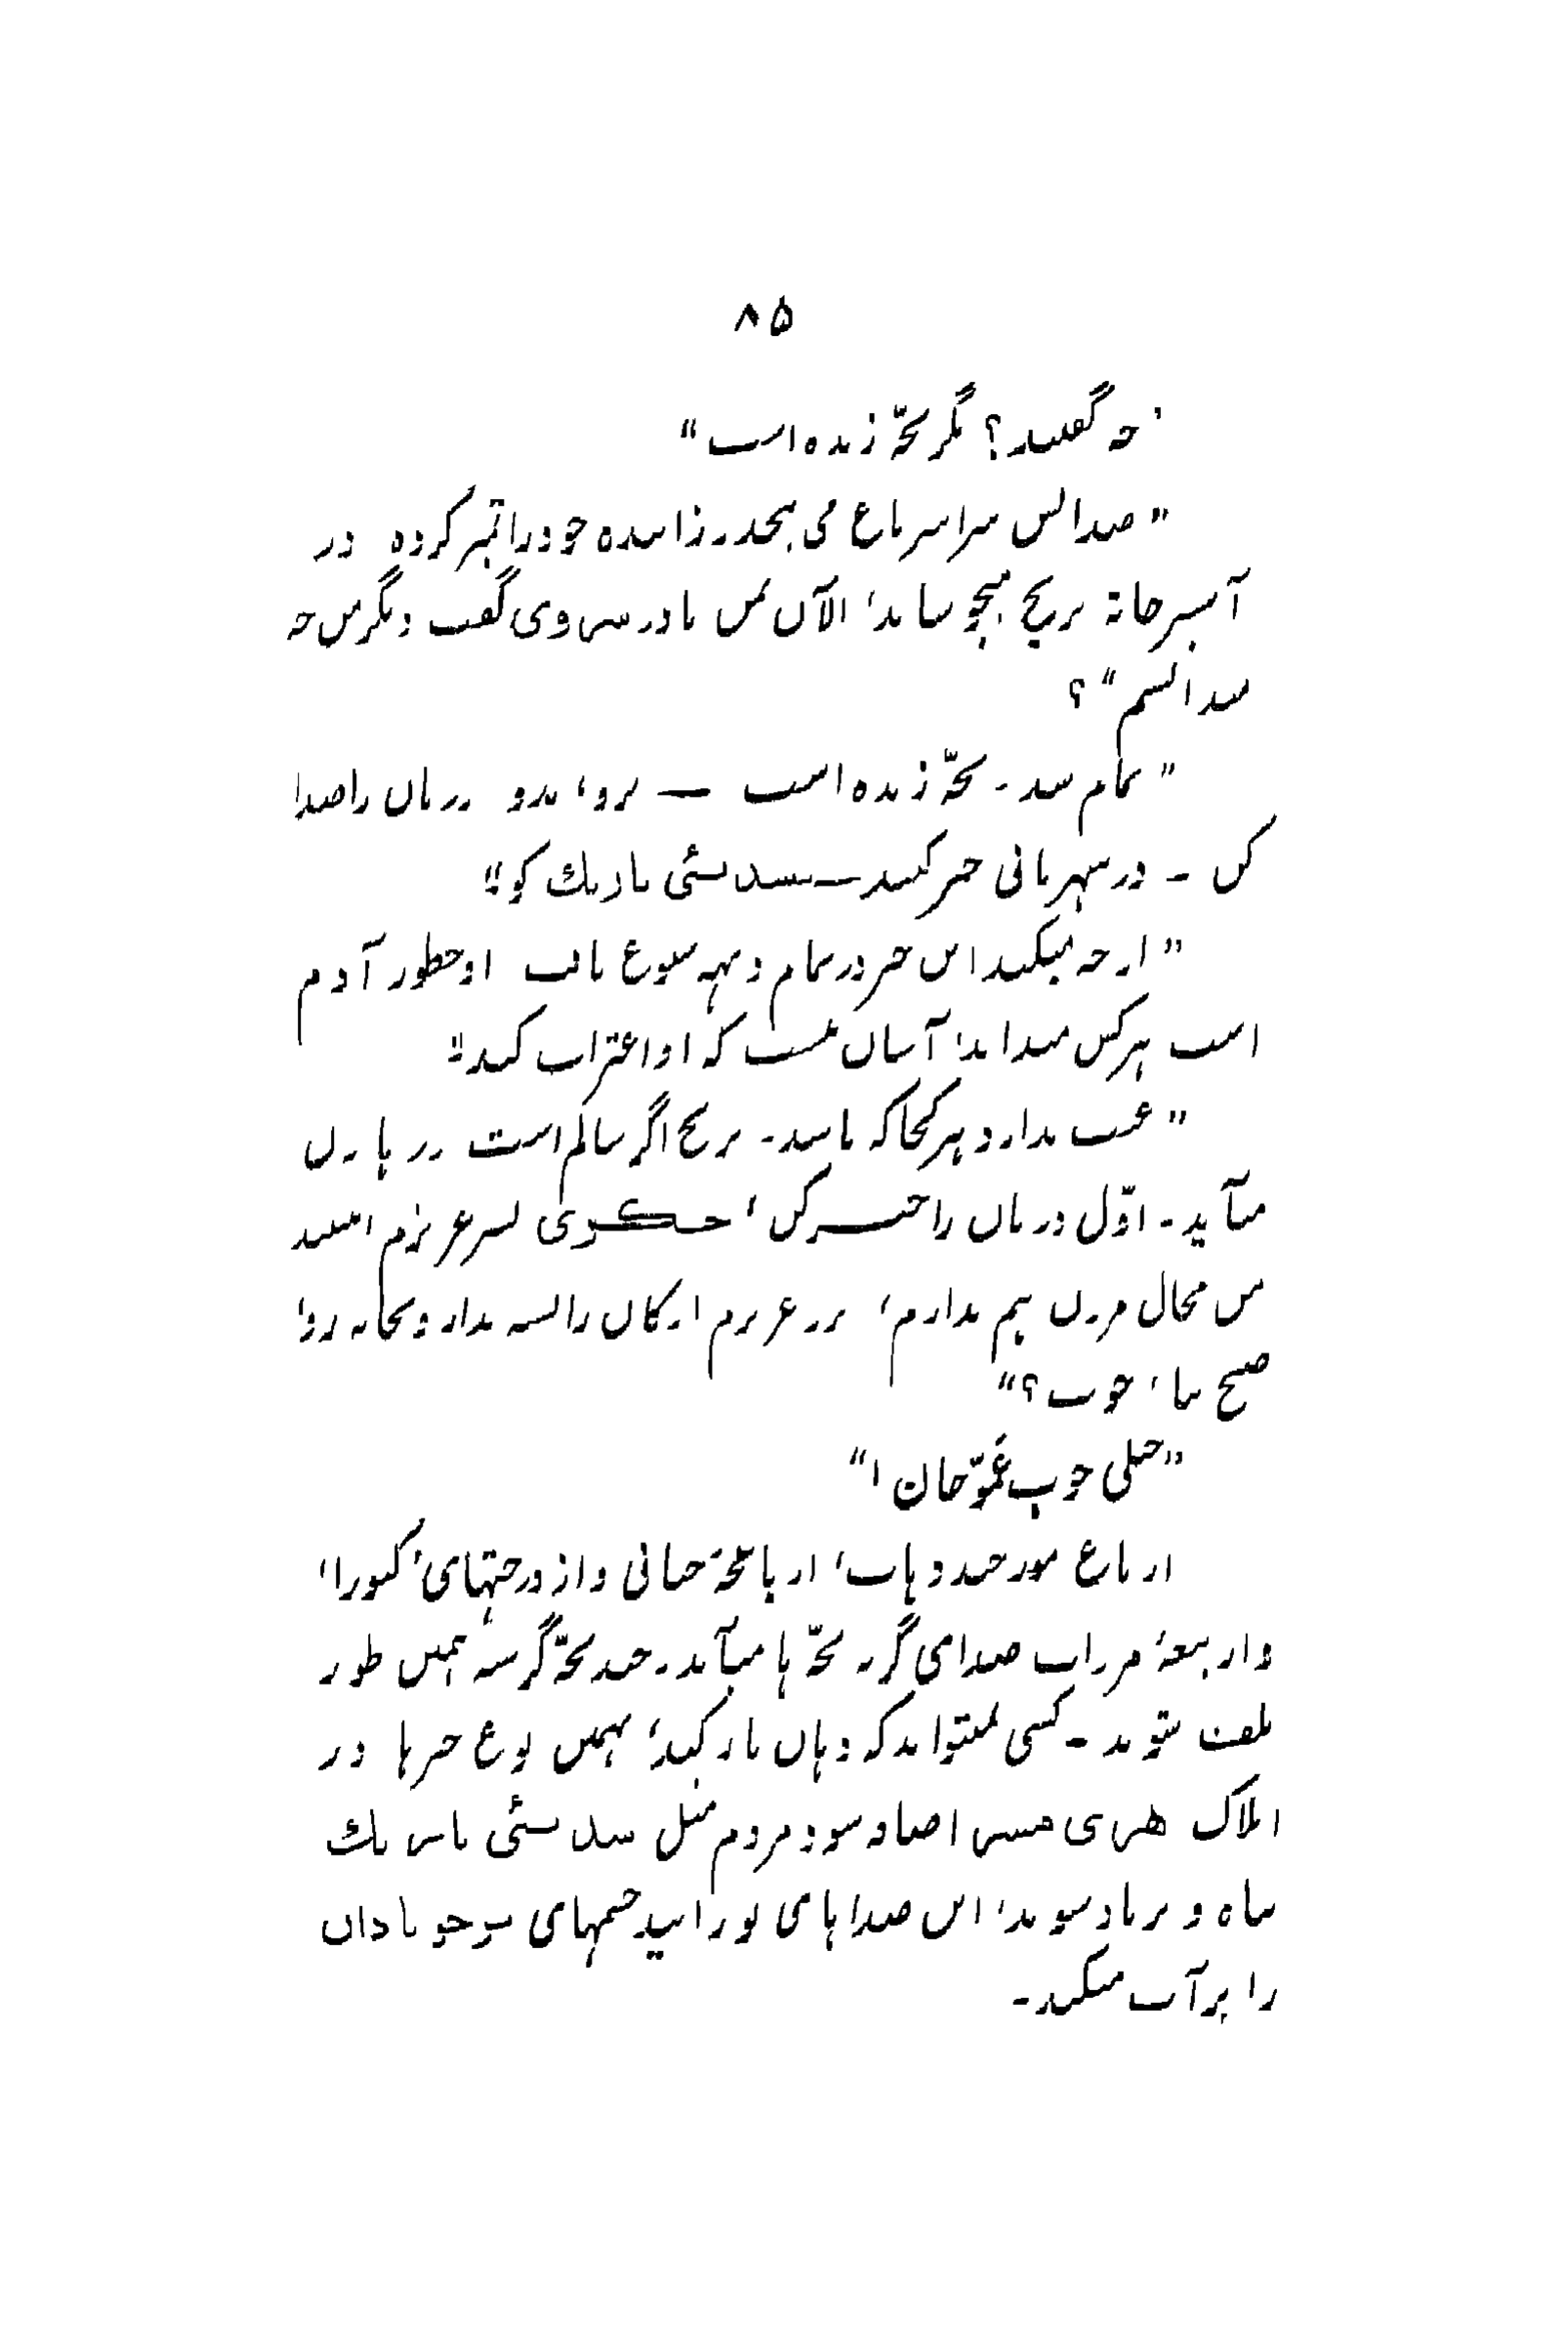 ۸۵
"چه گفتید؟ مگر بچّه زنده است"
"صدالش سراسر باغ می پیچد. زائیده خود را تمیز کرده در
آشپزخانهٔ برنج میجوشاند، الآن بمن مادر سروی گفت دیگر من چه
میدانستم"؟
"تمام شد۔ بچّه زنده است — برو، بدو دربان را صدا
کن ۔ در مهربانی خبر کنید — بسدیشئی باریك گو!"
"از چه میکنید این خبر در تمام دیهه شیوع یافت او چطور آدم
است هرکس میداند، آسان نیست که او اعتراف کند!"
"عیب ندارد هر کجا که باشد۔ برنج اگر سالم است در بازل
میآید۔ اوّل دربان را خبر کن، چکنوی پسر عزیزم امشب
من مجال مردن هم ندارم، برد عزیزم ارکان را بسه ندار و بخانه رو،
صبح بیا، خوب؟"
"خیلی خوب عموّجان!"
از باغ مورچند و باب، از باغچهٔ حیاتی و از درختهای، کیورا،
و از بیعهٔ مرداب صدای گریه بچّه ها میآید۔ چند بچّه گرسنه همین طور
تلف میشوند ۔ کسی نمیتواند که دهان باز کند، بهمین نوع خبرها در
املاك هنری جیسن اضافه شود مردم مثل سدیشئی باس یك
تباه و برباد شوند، این صداهای نوزائید چشمهای سوجوباداں
را پر آب میکند۔